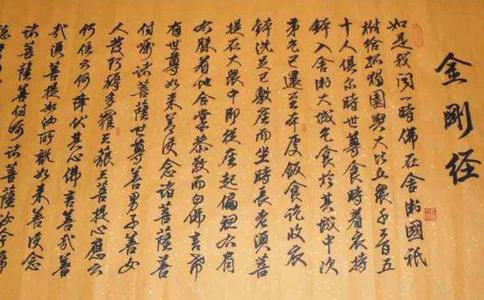 金剛经
如是我聞一時佛在舍衛國祇
樹給孤獨園與大比丘衆千二百五
十人俱爾時世尊食時着衣持
鉢入舍衛大城乞食於其城中次
第乞已還至本處飯食訖收衣
鉢洗足已敷座而坐時長老須菩
提在大衆中即從座起偏袒右肩
右膝着地合掌恭敬而白佛言希
有世尊如來善護念諸菩薩善
付囑諸菩薩世尊善男子善女
人發阿耨多羅三藐三菩提心應云
何住云何降伏其心佛言善哉善
哉須菩提如汝所說如來善護念
諸菩薩善付囑諸菩薩汝今諦